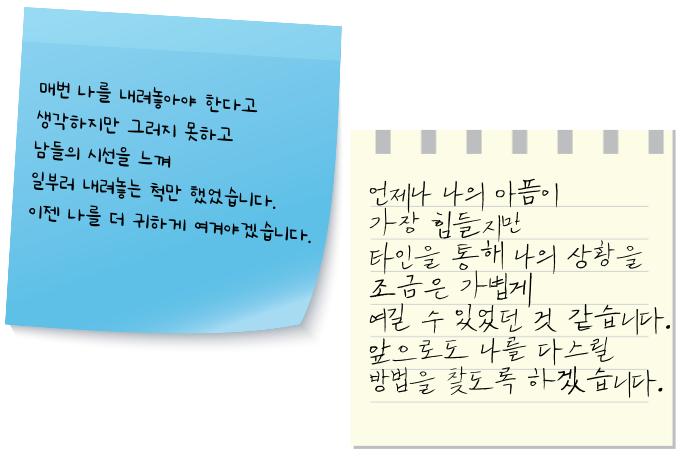 매번 나를 내려놓아야 한다고
생각하지만 그러지 못하고
남들의 시선을 느껴
일부러 내려놓는 척만 했었습니다.
이젠 나를 더 귀하게 여겨야겠습니다.
언제나 나의 아픔이
가장 힘들지만
타인을 통해 나의 상황을
조금은 가볍게
여길 수 있었던 것 같습니다.
앞으로도 나를 다스릴
방법을 찾도록 하겠습니다.